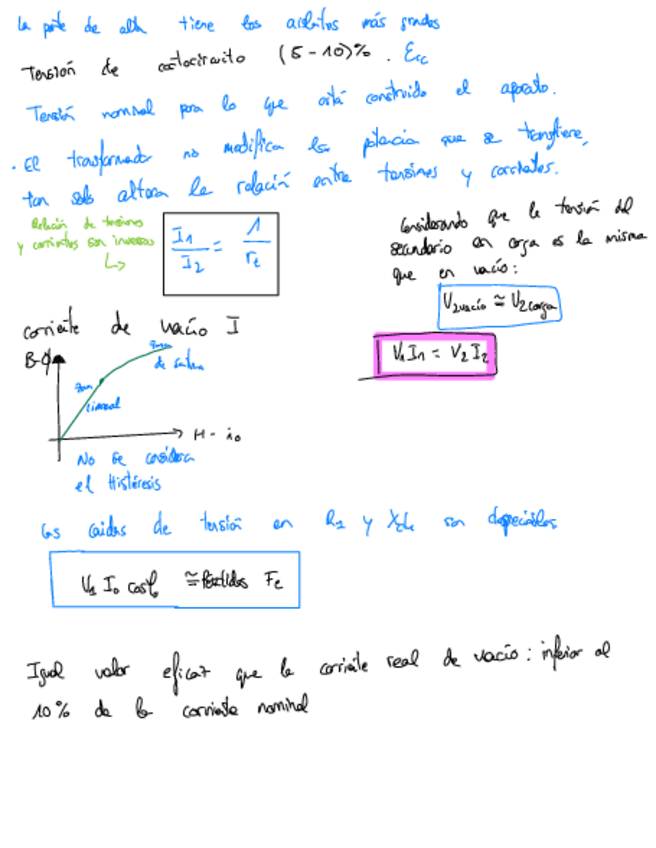 La parte de alta tiene los aislantes más grandes
Tensión de cortocircuito (5-10)%. Ecc
Tensión nominal para lo que está construido el aparato.
· El transformador no modifica la potencia que se transfiere,
tan solo altera la relación entre tensiones y corrientes.
Relación de tensiones
y corrientes son inversas
I1/I2 = 1/rt
Considerando que la tensión del
secundario en carga es la misma
que en vacío:
V2vacío ≃ V2carga
V1I1 = V2I2
corriente de vacío I
B-ϕ
zona
de satura
zona
lineal
H - i0
No se considera
el Histéresis
las caidas de tensión en y son despreciables
V1 I0 cosφ ≅ Pérdidas Fe
Igual valor eficaz que la corriente real de vacío: inferior al
10% de la corriente nominal